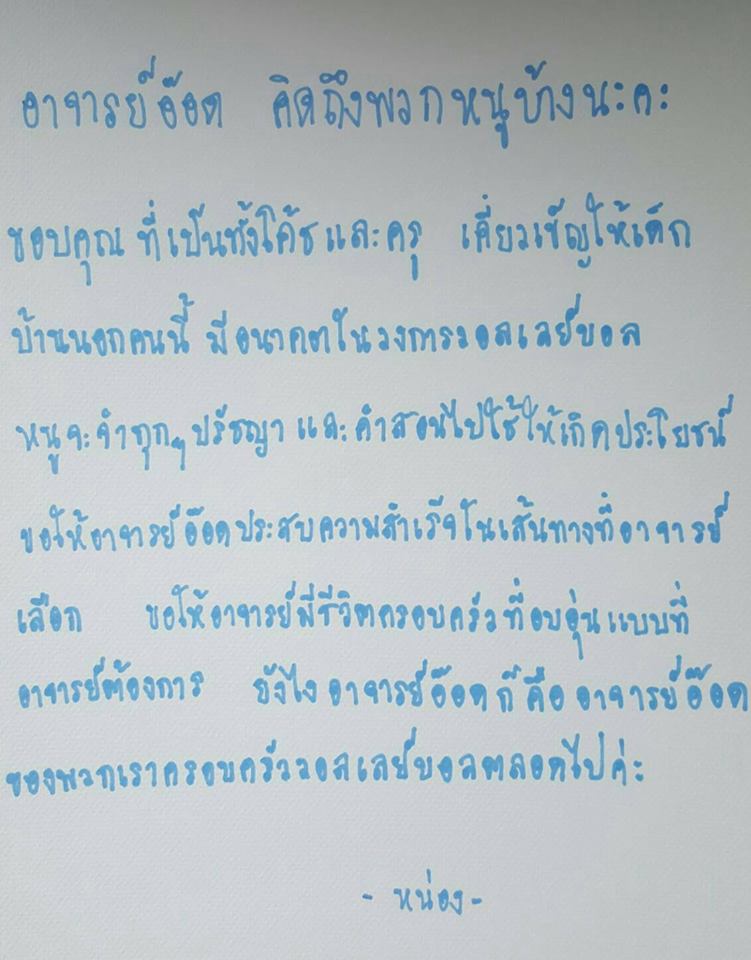 อาจารย์อ๊อด คิดถึงพวกหนูบ้างนะคะ
ขอบคุณ ที่เป็นทั้งโค้ชและครู เคี่ยวเข็ญให้เด็ก
บ้านนอกคนนี้ มีอนาคตในวงการวอลเลย์บอล
หนูจะจำทุกๆ ปรัชญา และคำสอนไปใช้ให้เกิดประโยชน์
ขอให้อาจารย์อ๊อดประสบความสำเร็จในเส้นทางที่อาจารย์
เลือก ขอให้อาจารย์มีชีวิตครอบครัวที่อบอุ่นแบบที่
อาจารย์ต้องการ ยังไงอาจารย์อ๊อดก็คืออาจารย์อ๊อด
ของพวกเราครอบครัววอลเลย์บอลตลอดไปค่ะ
- หน่อง -